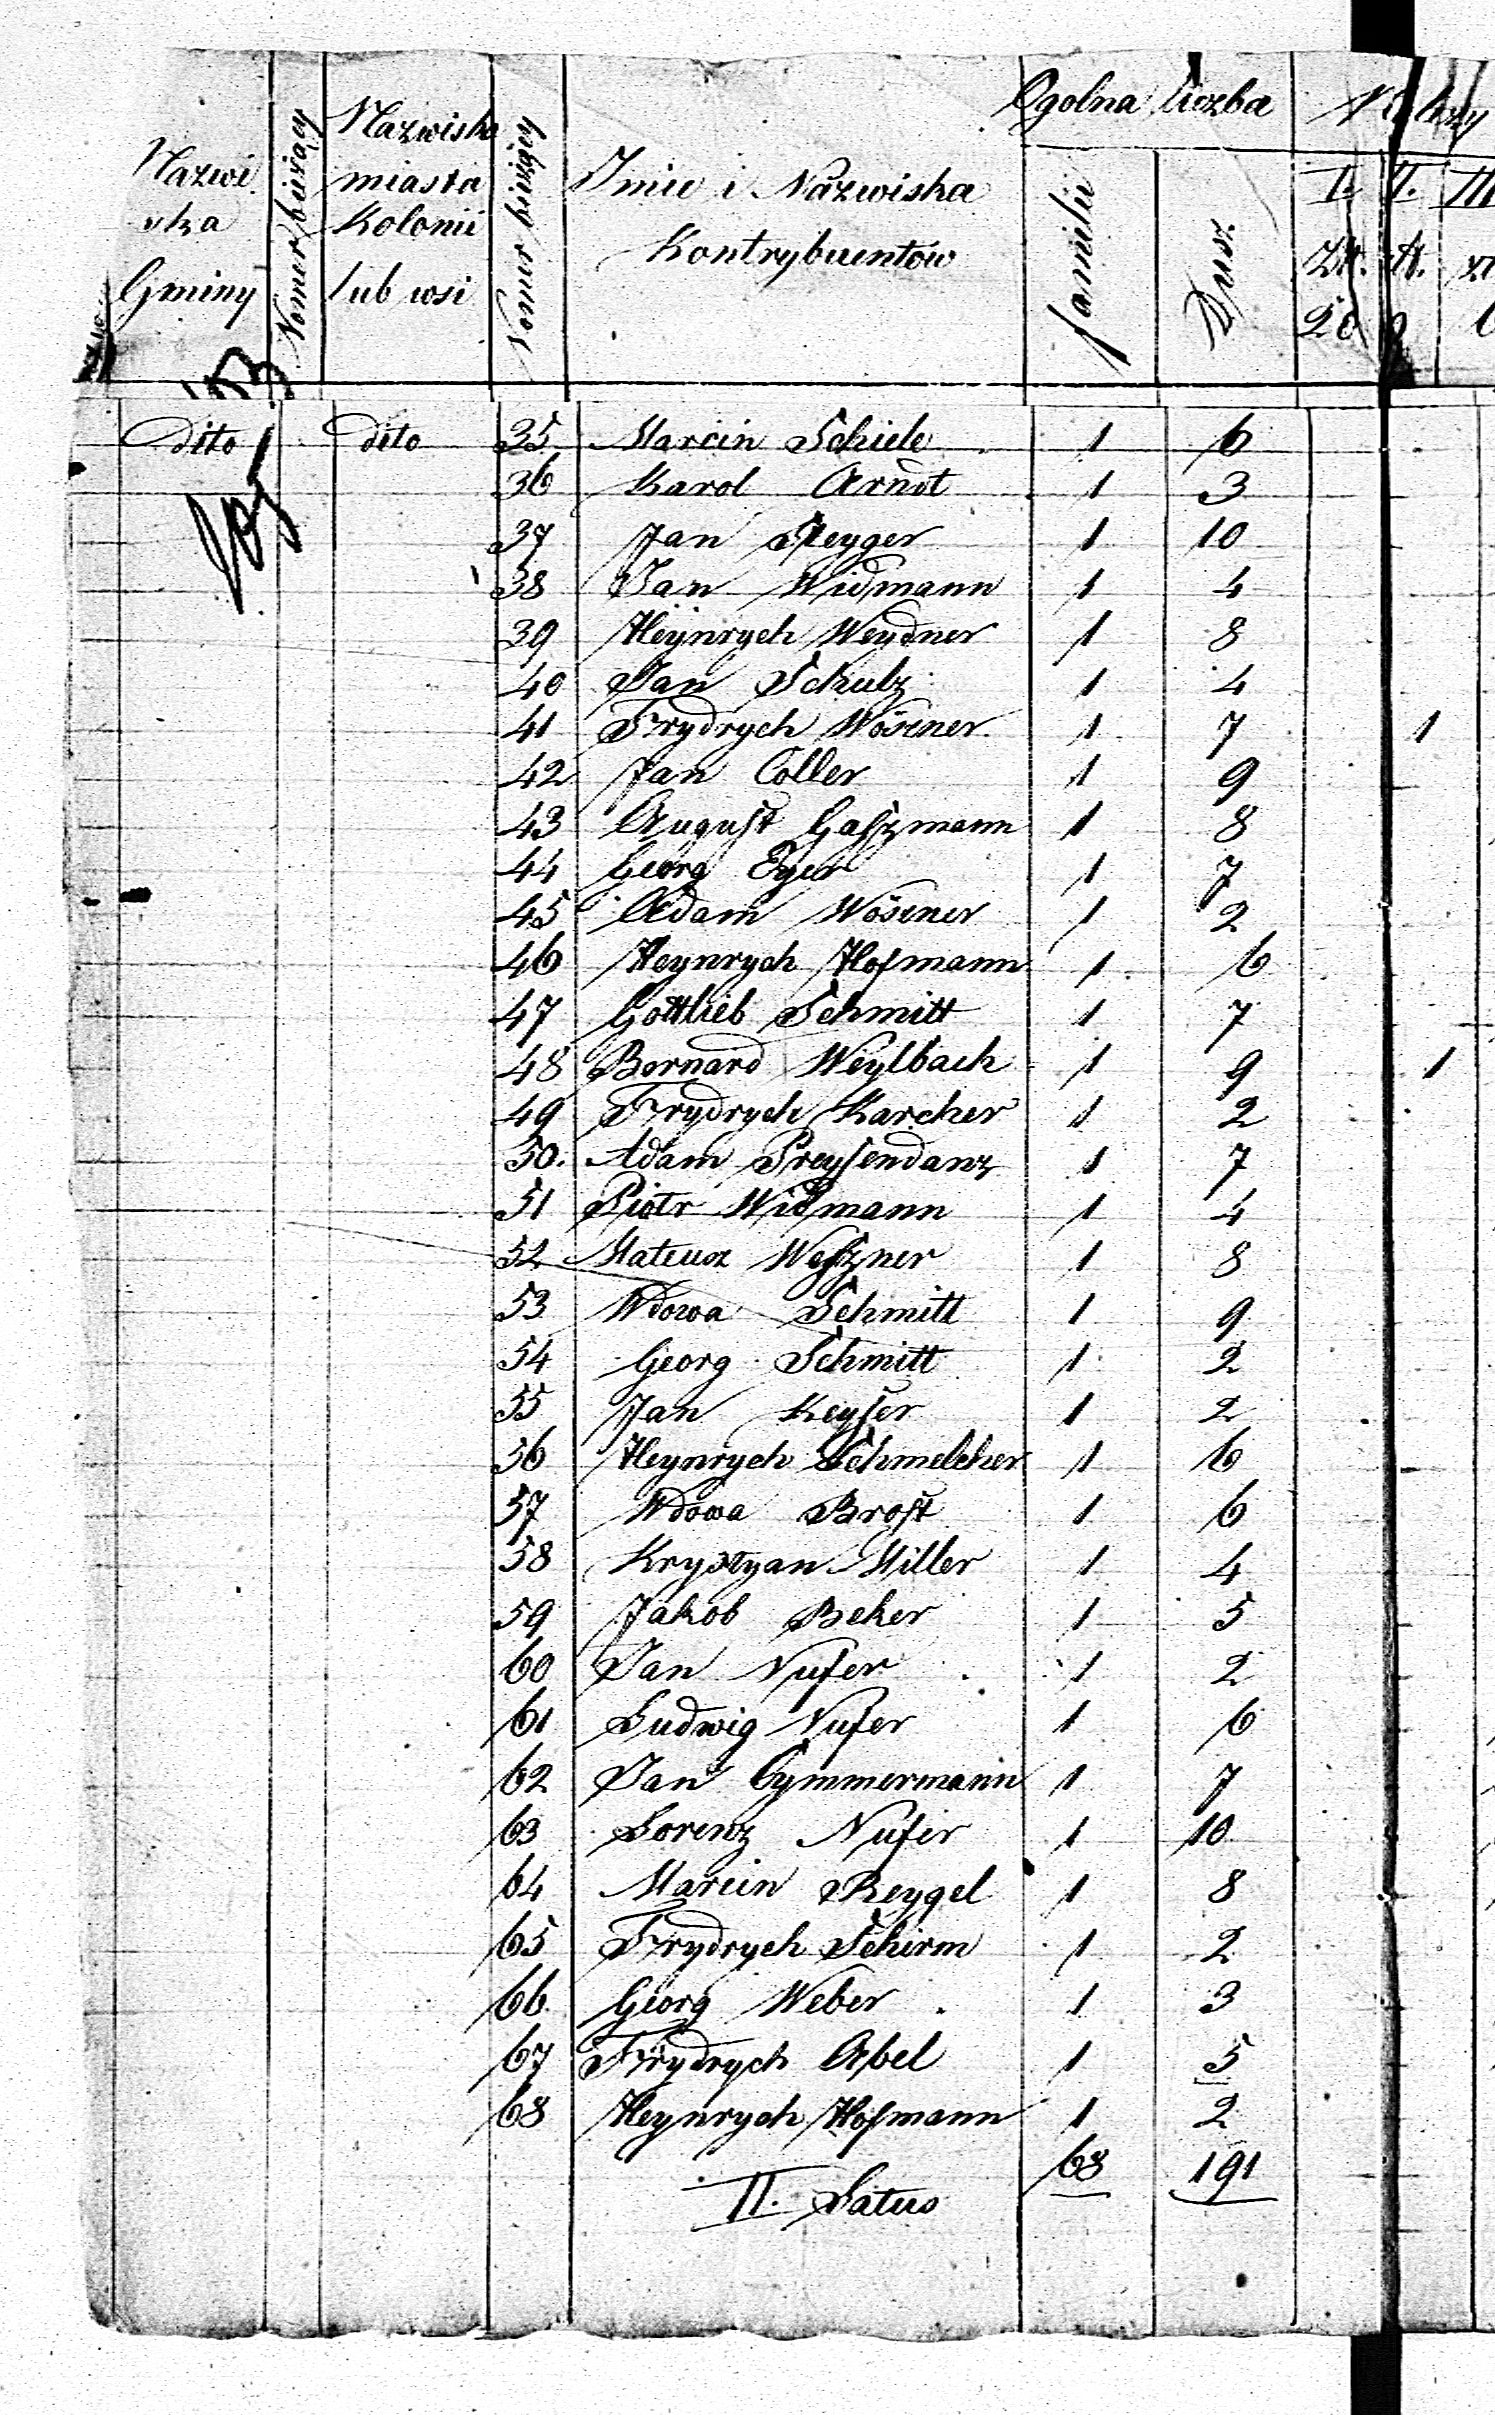 Nazwiska Gminy
Nomer bieżący
Nazwiska miasta Kolonii lub wsi
Nomer bieżący
Imie i Nazwiska Kontrybuentów
Ogolna liczba
familii
Dusz
I. II. III
Zł. zł. zł
20
dito dito 35 Marcin Schiele 1 6
36 Karol Arndt 1 3
37 Jan Steyger 1 10
38 Jan Widmann 1 4
39 Heynrych Weydner 1 8
40 Jan Schulz 1 4
41 Frydrych Wöszner 1 7 1
42 Jan Coller 1 9
43 August Gaszmann 1 8
44 Georg Eyer 1 7
45 Adam Wöszner 1 2
46 Heynrych Hofmann 1 6
47 Gottlieb Schmitt 1 7
48 Bernard Weylbach 1 9 1
49 Frydrych Karcher 1 2
50. Adam Preysendanz 1 7
51 Piotr Widmann 1 4
52 Mateusz Weszner 1 8
53 Wdowa Schmitt 1 9
54 Georg Schmitt 1 2
55 Jan Keyser 1 2
56 Heynrych Schmelcher 1 6
57 Wdowa Brost 1 6
58 Krystyan Miller 1 4
59 Jakob Beker 1 5
60 Jan Nufer 1 2
61 Ludwig Nufer 1 6
62 Jan Cymmermann 1 7
63 Lorenz Nufer 1 10
64 Marcin Beygel 1 8
65 Frydrych Schirm 1 2
66 Georg Weber 1 3
67 Frydrych Abel 1 5
68 Heynrych Hofmann 1 2
68 191
II. Latus